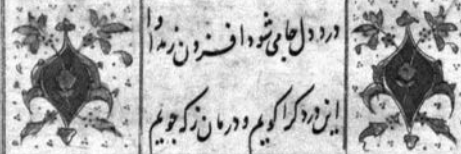 درد دل جامی شود افزون ز مداوا
این درد کرا گویم و درمان ز که جویم